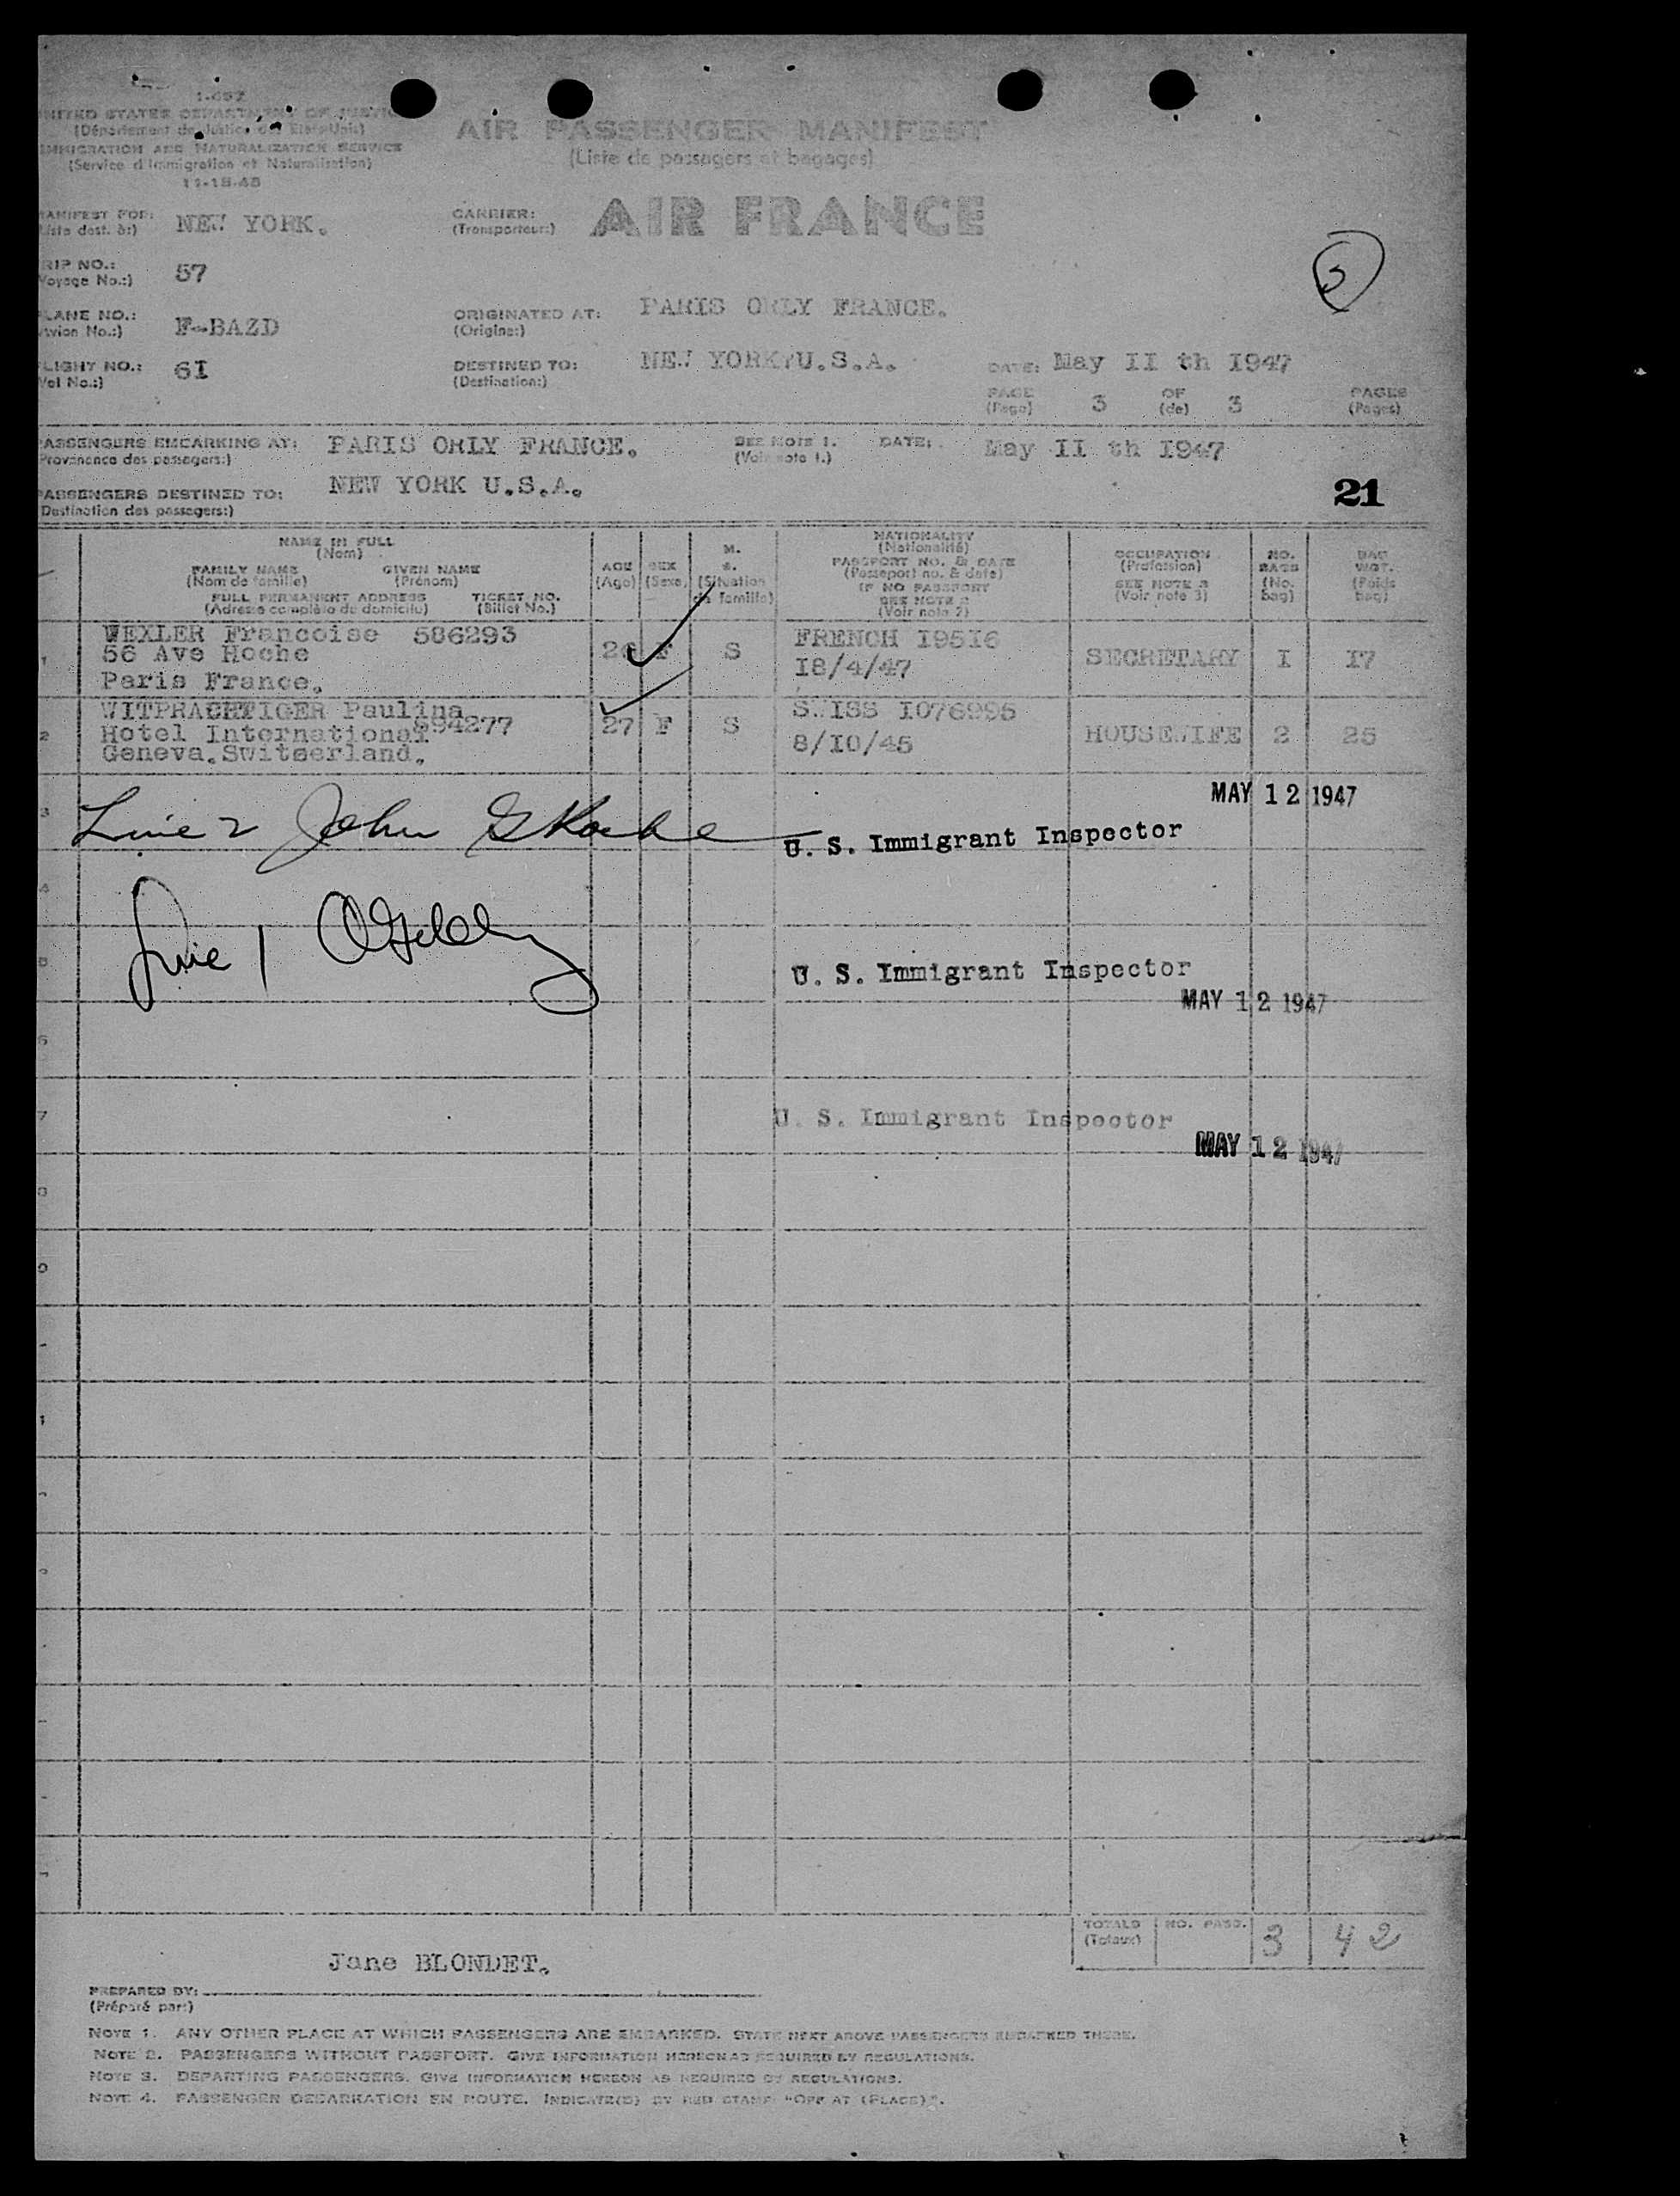 I-657
UNITED STATES DEPARTMENT OF JUSTICE
(Département de Justice des Etats-Unis)
IMMIGRATION AND NATURALIZATION SERVICE
(Service d'Immigration et Naturalisation)
11-18-45
AIR PASSENGER MANIFEST
(Liste de passagers et bagages)
MANIFEST FOR: NEW YORK.
(Liste dest. à:)
CARRIER: AIR FRANCE
(Transporteur:)
TRIP NO.: 57
(Voyage No.:)
3
PLANE NO.: F-BAZD
(Avion No.:)
ORIGINATED AT: PARIS ORLY FRANCE.
(Origine:)
FLIGHT NO.: 6I
(Vol No.:)
DESTINED TO: NEW YORK,U.S.A.
(Destination:)
DATE: May II th I947
PAGE 3 OF 3 PAGES
(Page) (de) (Pages)
PASSENGERS EMBARKING AT: PARIS ORLY FRANCE. SEE NOTE 1. DATE: May II th I947
(Provenance des passagers:) (Voir note 1.)
PASSENGERS DESTINED TO: NEW YORK U.S.A.
(Destination des passagers:)
21
NAME IN FULL
(Nom)
FAMILY NAME GIVEN NAME
(Nom de famille) (Prénom)
FULL PERMANENT ADDRESS TICKET NO.
(Adresse complète du domicile) (Billet No.)
AGE
(Age)
SEX
(Sexe)
M.
S.
(Situation
de famille)
NATIONALITY
(Nationalité)
PASSPORT NO. & DATE
(Passeport no. & date)
IF NO PASSPORT
SEE NOTE 2
(Voir note 2)
OCCUPATION
(Profession)
SEE NOTE 3
(Voir note 3)
NO.
BAGS
(No.
bag)
BAG
WGT.
(Poids
bag)
1 WEXLER Francoise 586293 F S FRENCH I95I6 SECRETARY I I7
56 Ave Hoche I8/4/47
Paris France.
2 WITPRACHTIGER Paulina 27 F S SWISS I076995 HOUSEWIFE 2 25
Hotel International 594277 8/I0/45
Geneva.Switserland.
3
MAY 12 1947
Line 2 John
U. S. Immigrant Inspector
4
Line 1
5
U. S. Immigrant Inspector
MAY 12 1947
6
7
U. S. Immigrant Inspector
MAY 12 1947
TOTALS NO. PASS. 3 42
(Totaux)
Jane BLONDET.
PREPARED BY:
(Préparé par:)
NOTE 1. ANY OTHER PLACE AT WHICH PASSENGERS ARE EMBARKED. STATE NEXT ABOVE PASSENGERS EMBARKED THERE.
NOTE 2. PASSENGERS WITHOUT PASSPORT. GIVE INFORMATION HEREON AS REQUIRED BY REGULATIONS.
NOTE 3. DEPARTING PASSENGERS. GIVE INFORMATION HEREON AS REQUIRED BY REGULATIONS.
NOTE 4. PASSENGER DEBARKATION EN ROUTE. INDICATE(D) BY RED STAMP "OFF AT (PLACE)".